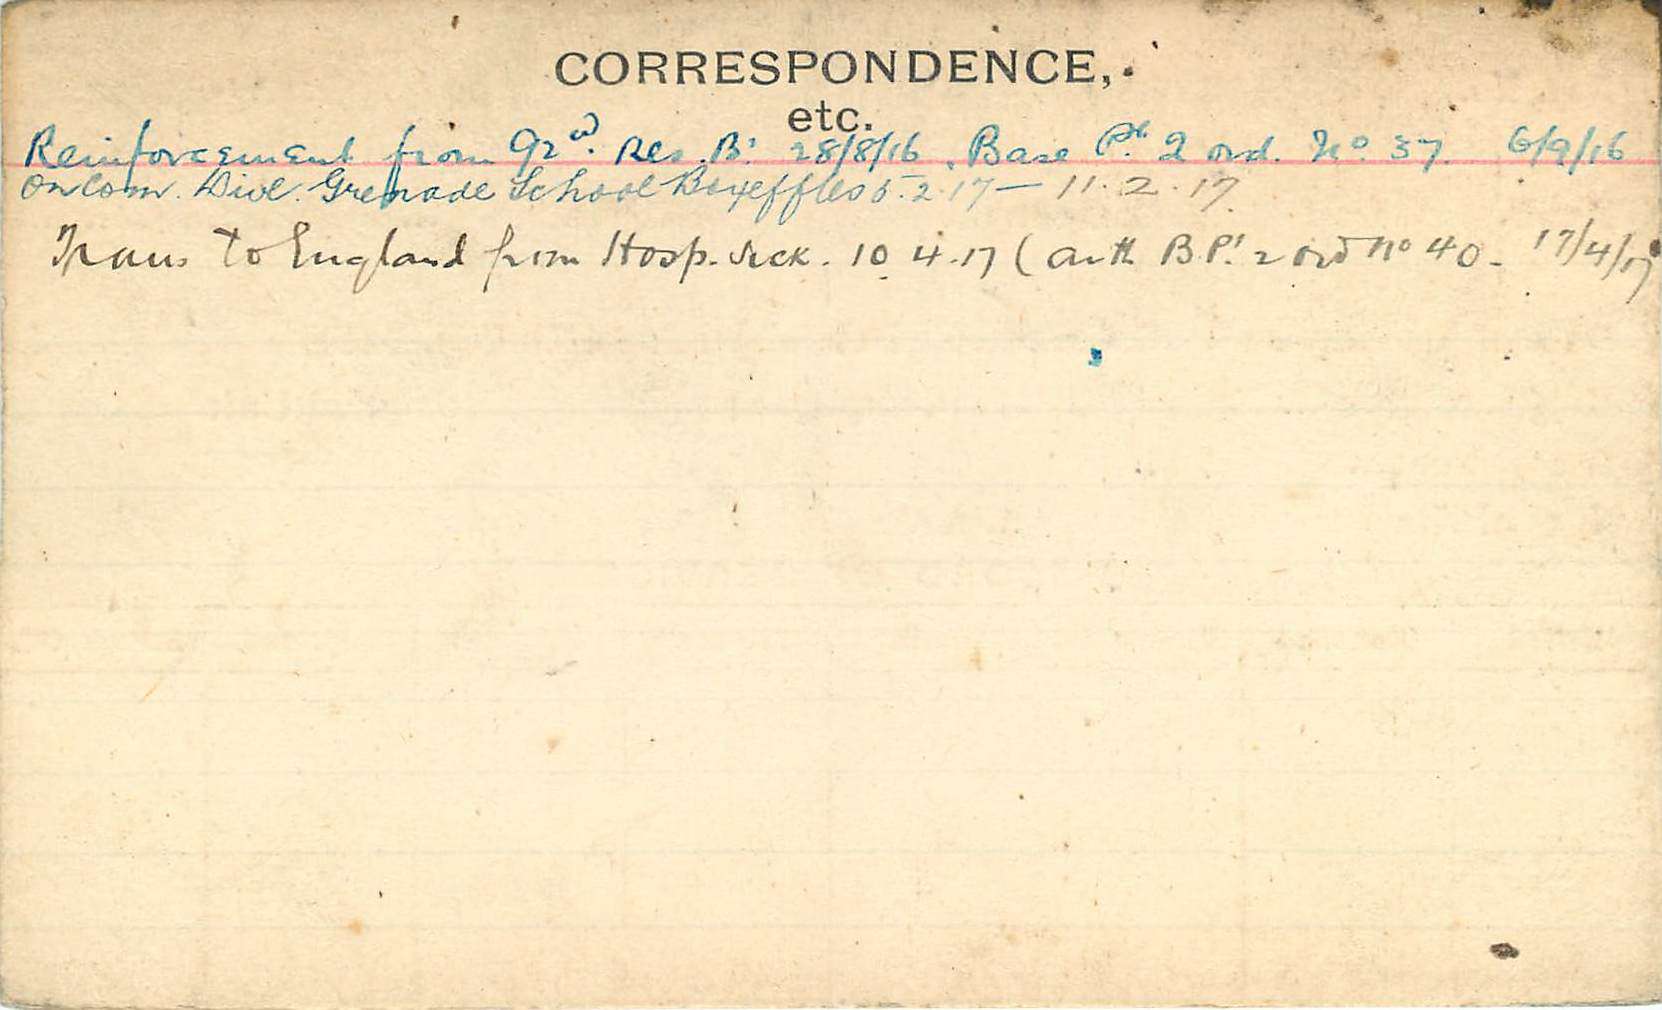 CORRESPONDENCE,
etc.
Reinforcement from 92nd. Res. Bn 28/8/16. Base Pt. 2 ord. No. 37. 6/9/16
On Com. Divl. Grenade School 5.2.17 — 11.2.17
Trans to England from Hosp. sick. 10.4.17 (auth B.Pt 2 ord No 40. 17/4/17